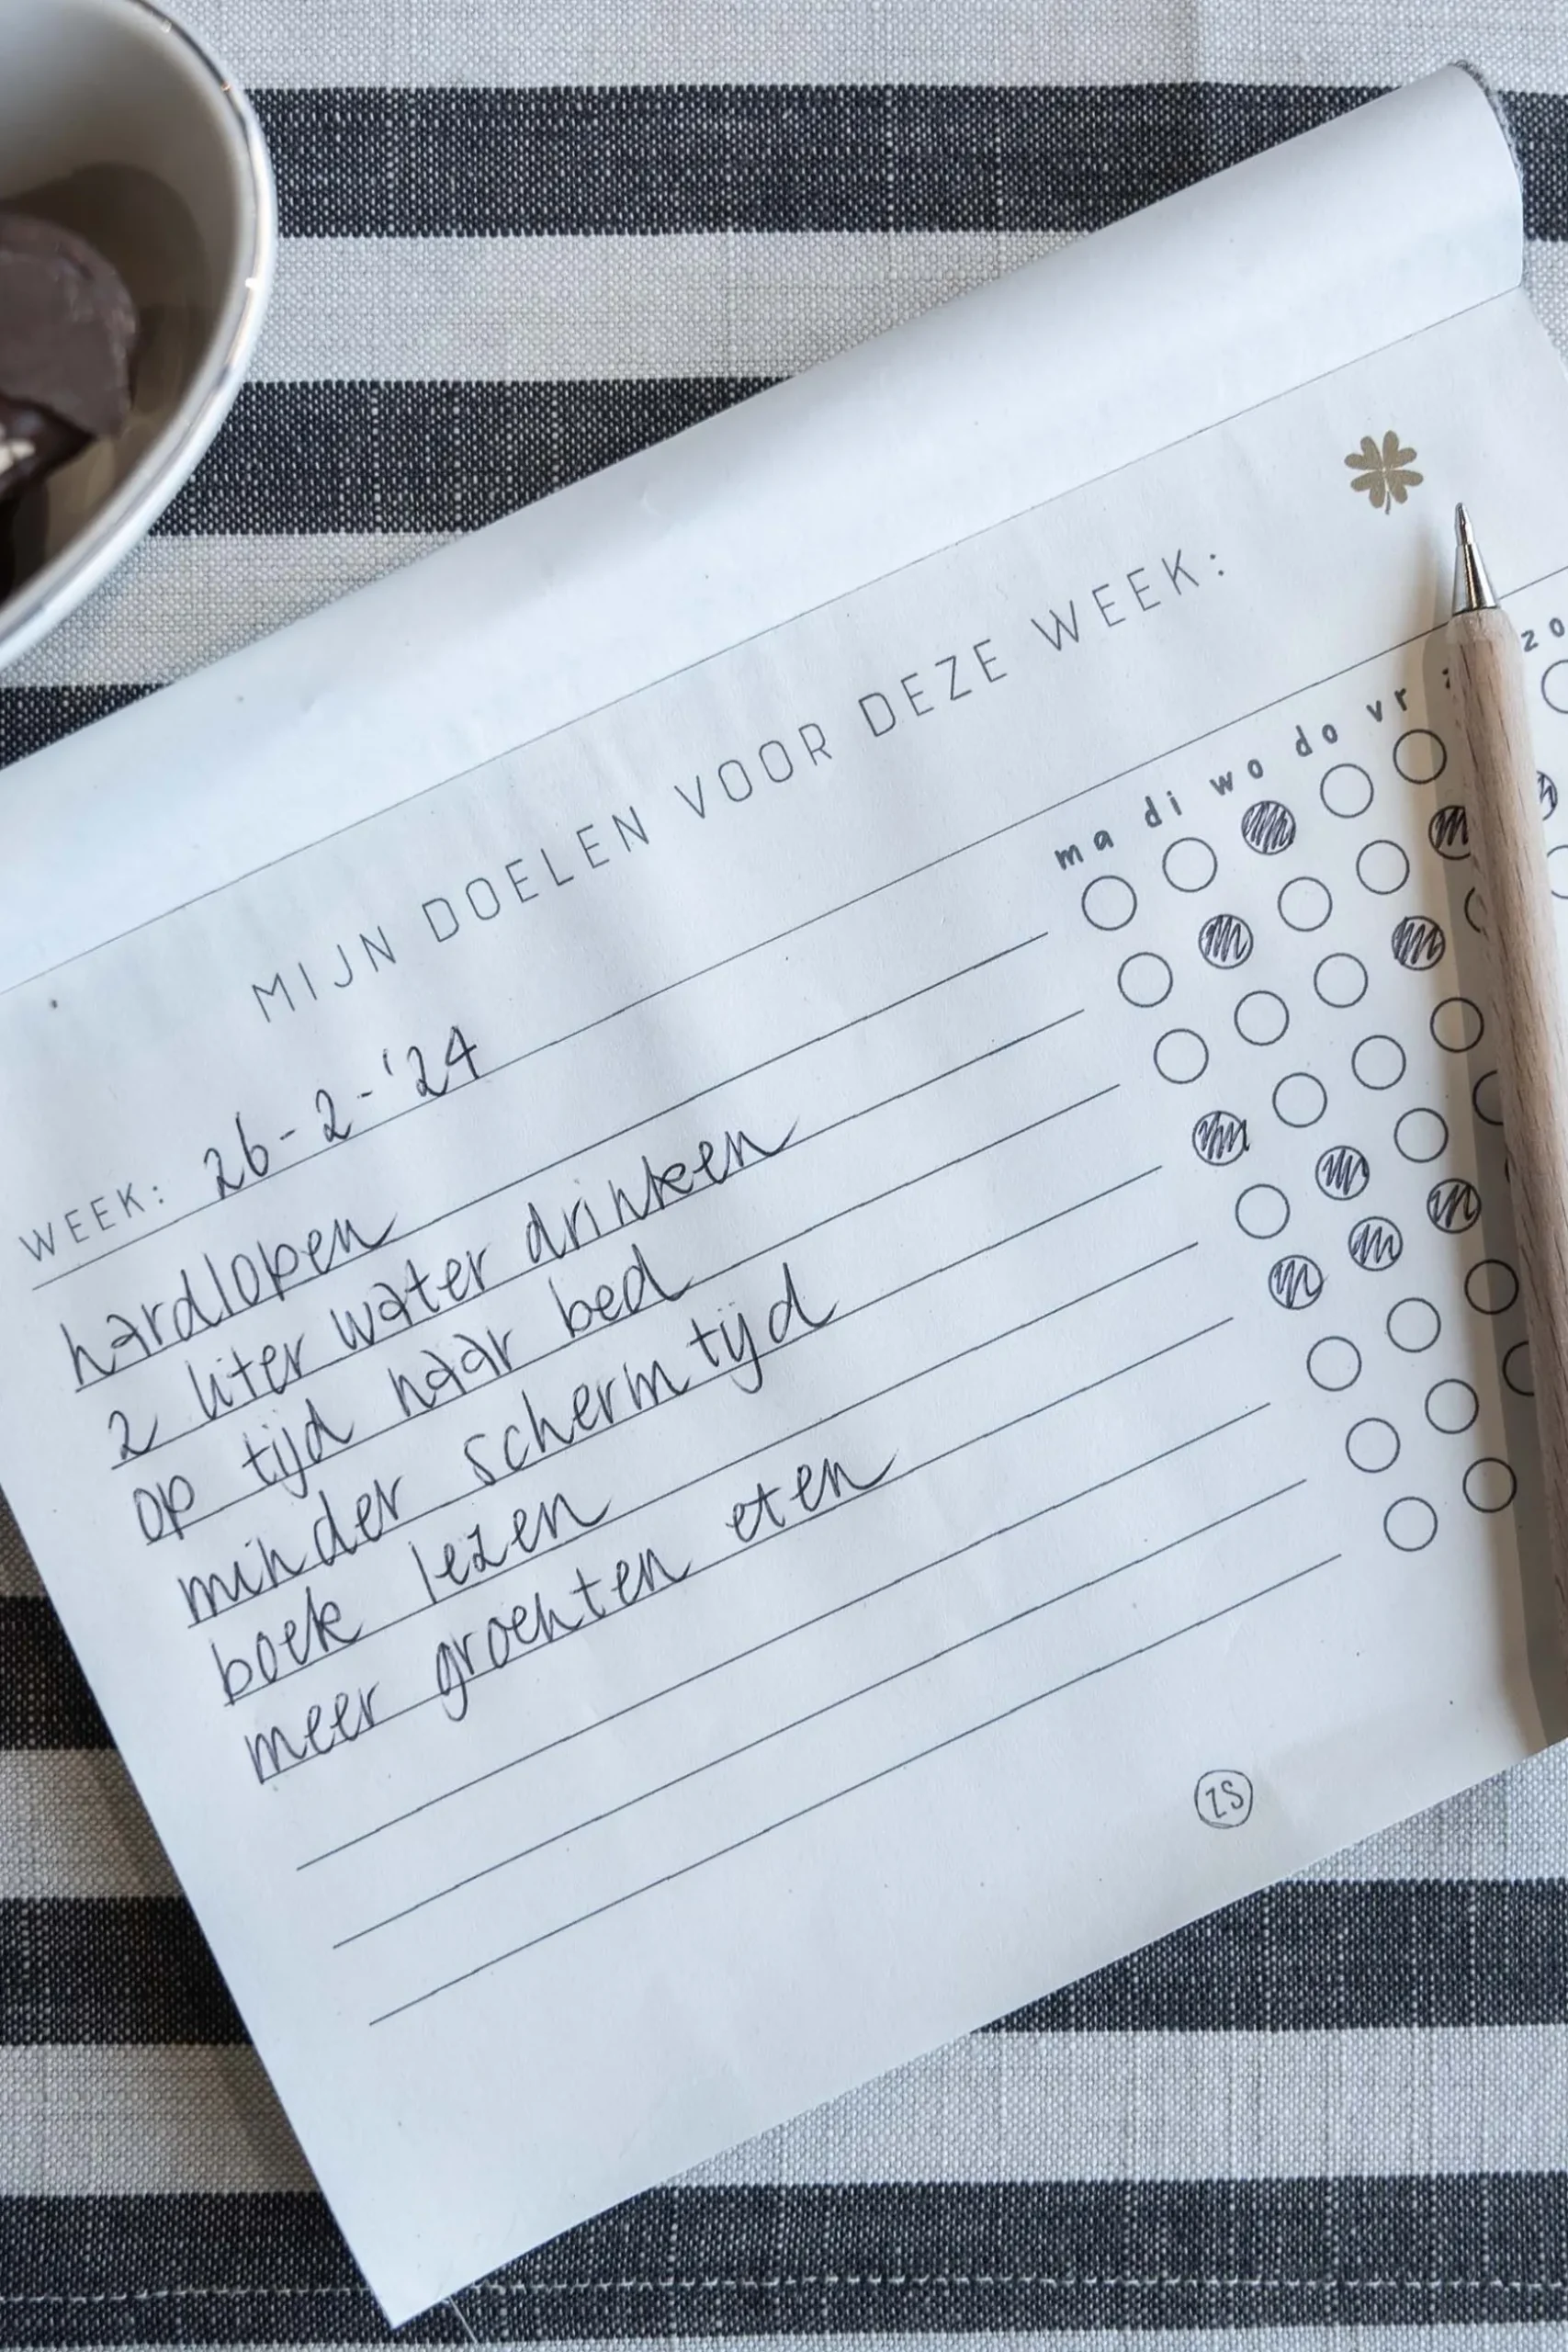 MIJN DOELEN VOOR DEZE WEEK:
WEEK: 26-2-'24
ma di wo do vr zo
hardlopen
2 liter water drinken
op tijd naar bed
minder schermtijd
boek lezen
meer groenten eten
ZS